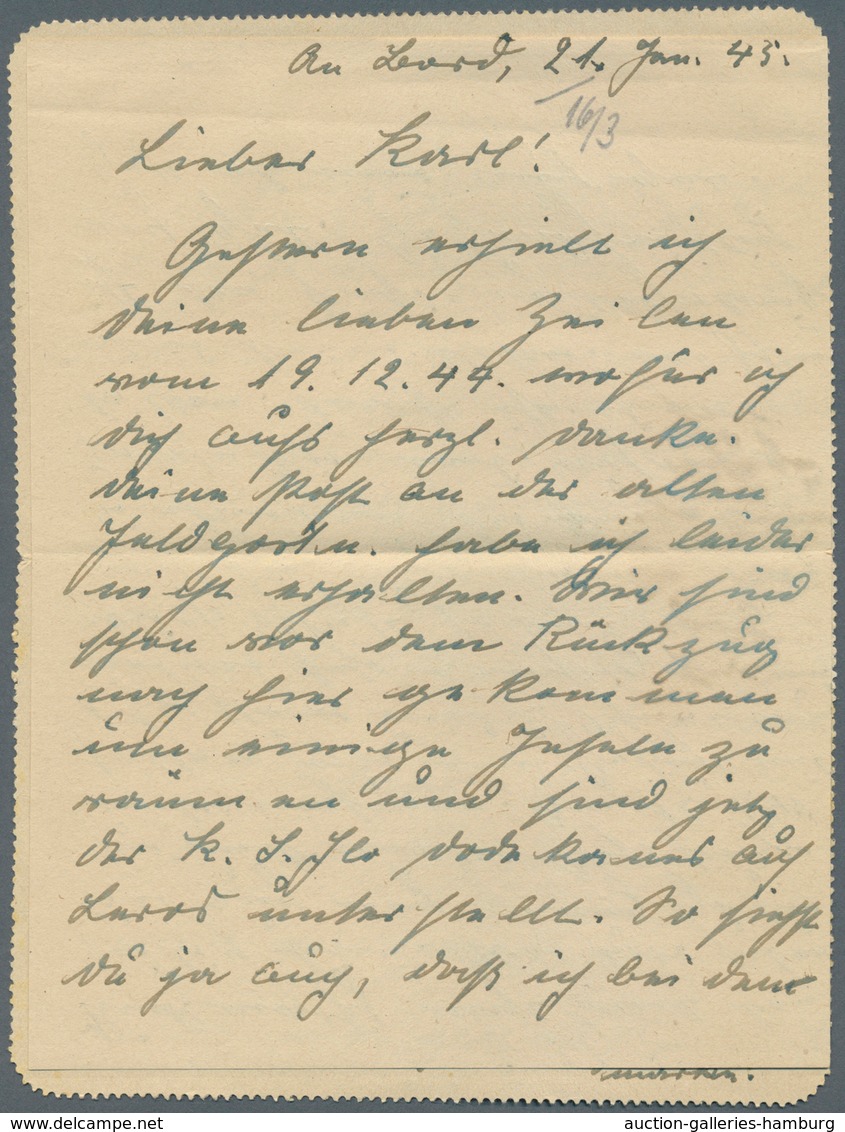 An Bord, 21. Jan. 45.
16/3
Lieber Karl!
Gestern erhielt ich
deine lieben Zeilen
vom 19. 12. 44. wofür ich
dich aufs herzl. danke.
Deine Post an der alten
Feldpostn. habe ich leider
nicht erhalten. Wir sind
schon vor dem Rückzug
nach hier gekommen
um einige Inseln zu
räumen und sind jetz
der K. S. Flo Dodekanes auf
Leros unterstellt. So siehst
du ja auch, daß ich bei dem
auction-galleries-hamburg